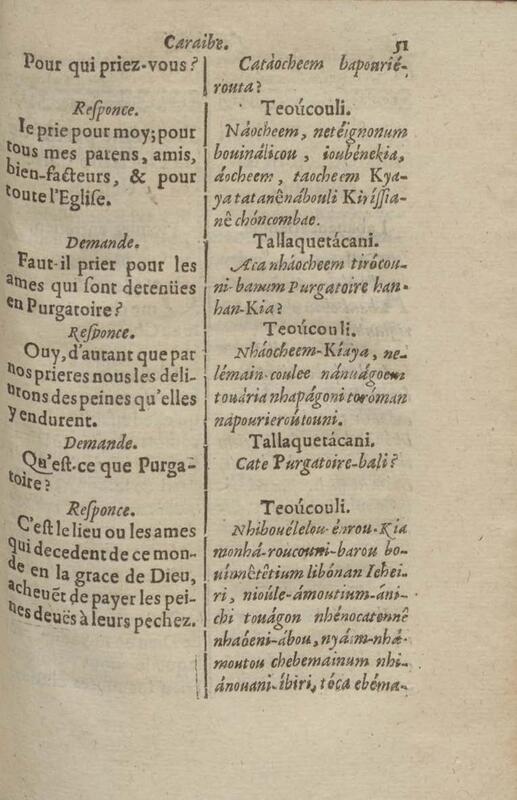 Caraibe. 51
Pour qui priez-vous?
Reſponce.
Ie prie pour moy; pour
tous mes parens, amis,
bien-facteurs, & pour
toute l'Egliſe.
Demande.
Faut-il prier pour les
ames qui ſont detenües
en Purgatoire?
Reſponce.
Ouy, d'autant que par
nos prieres nous les deli-
urons des peines qu'elles
y endurent.
Demande.
Qu'eſt-ce que Purga-
toire?
Reſponce.
C'eſt le lieu ou les ames
qui decedent de ce mon-
de en la grace de Dieu,
acheuẽt de payer les pei-
nes deuës à leurs pechez.
Catáocheem bapourié-
routa?
Teoúcouli.
Náocheem, netéignonum
bouinálicou, ioubénekia,
áocheem, taocheem Kya-
ya tatanênábouli Kiriſſia-
nê chóncombae.
Tallaquetácani.
Æca nháocheem tirócou-
ni-banum Purgatoire han-
han-Kia?
Teoúcouli.
Nháocheem-Kiaya, ne-
lémain-coulee nánuágoem
touária nhapágoni toróman
nápourieroútouni.
Tallaquetácani.
Cate Purgatoire-bali?
Teoúcouli.
Nhibouélelou-énrou-Kia
monhá-roucouni-barou bo-
uinnêtêtium libónan Ichei-
ri, nioúle-ámoutium-áni-
chi touágon nhénocatennê
nhaóeni-ábou, nyám-nhá-
moutou chebemainum nhi-
ánouani-íbiri, tóca ebéma-